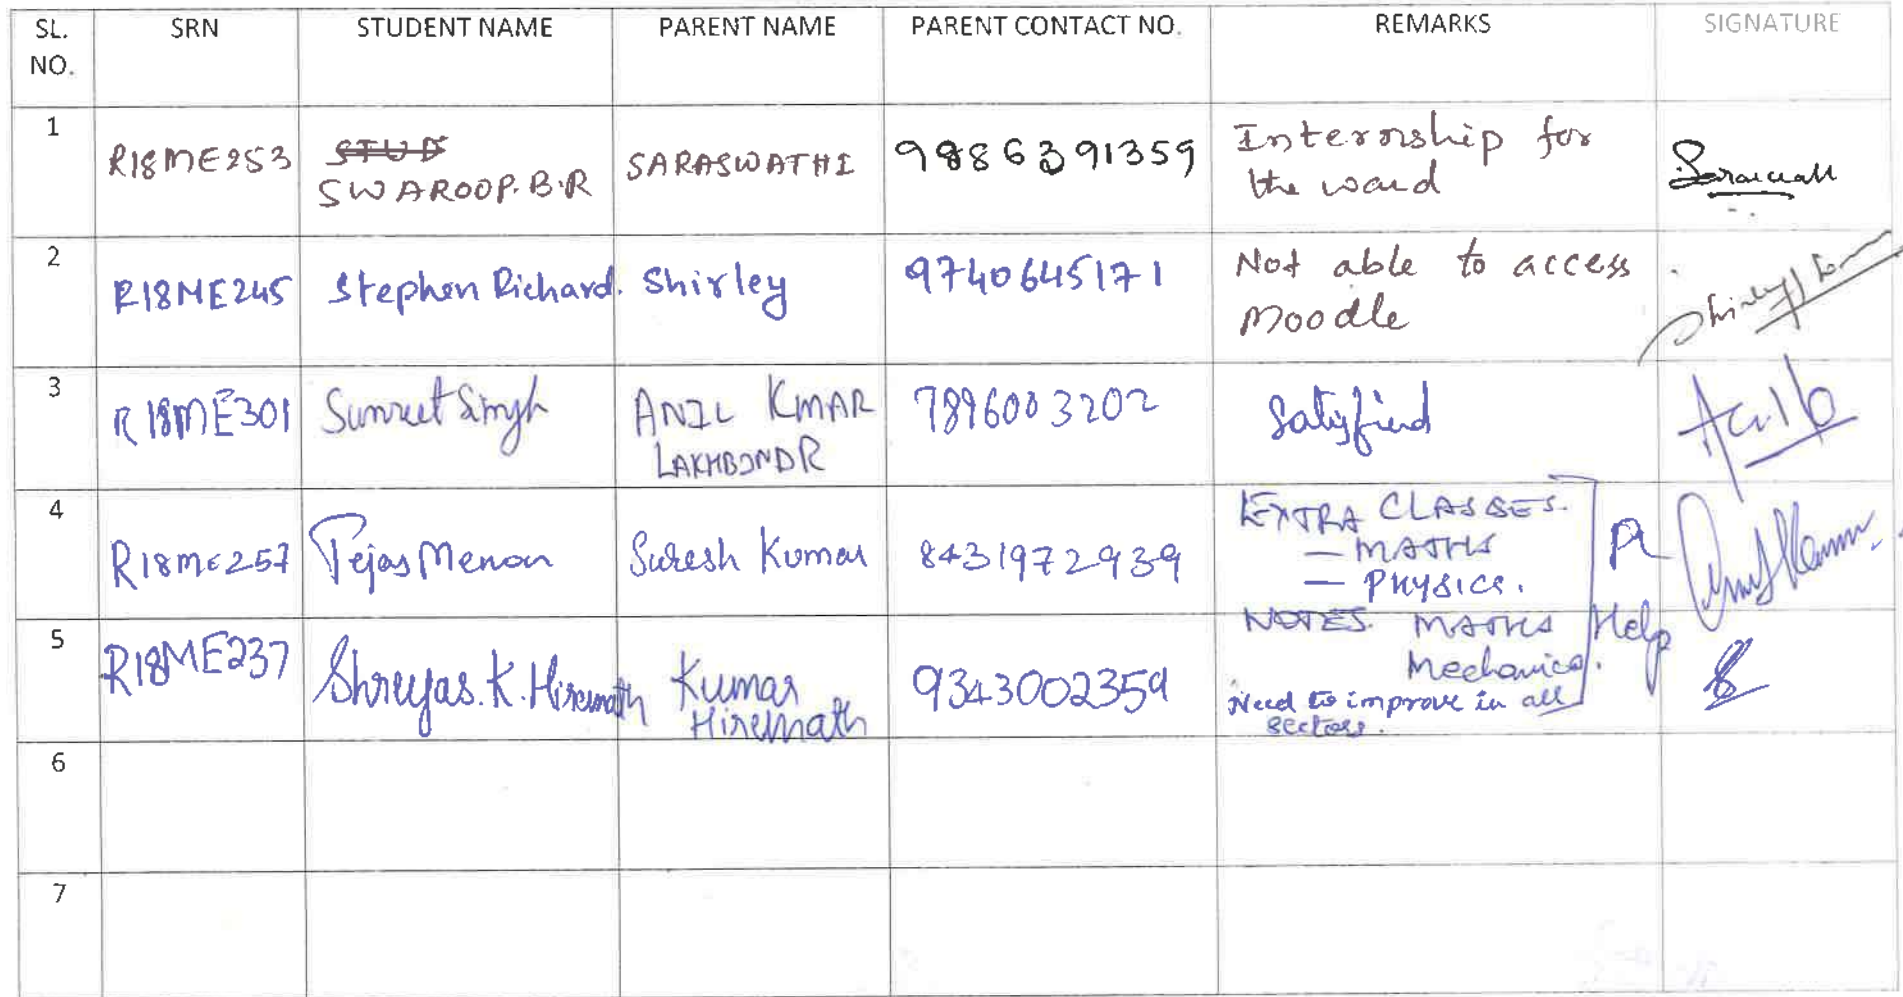 SL. NO. SRN STUDENT NAME PARENT NAME PARENT CONTACT NO. REMARKS SIGNATURE
1 R18ME253 STUD SWAROOP.B.R SARASWATHI 9886391359 Internship for the ward
2 R18ME245 Stephen Richard. Shirley 9740645171 Not able to access Moodle
3 R18ME301 Sumeet Singh ANIL KMAR 7896003202 Satisfied
4 R18ME257 Tejas Menon Suresh Kumar 8431972939 EXTRA CLASSES.
— MATHS
— PHYSICS.
NOTES. MATHS
Mechanics.
Pl
Help
5 R18ME237 Shreyas.K.Hiremath Kumar Hiremath 9343002359 Need to improve in all sectors.
6
7